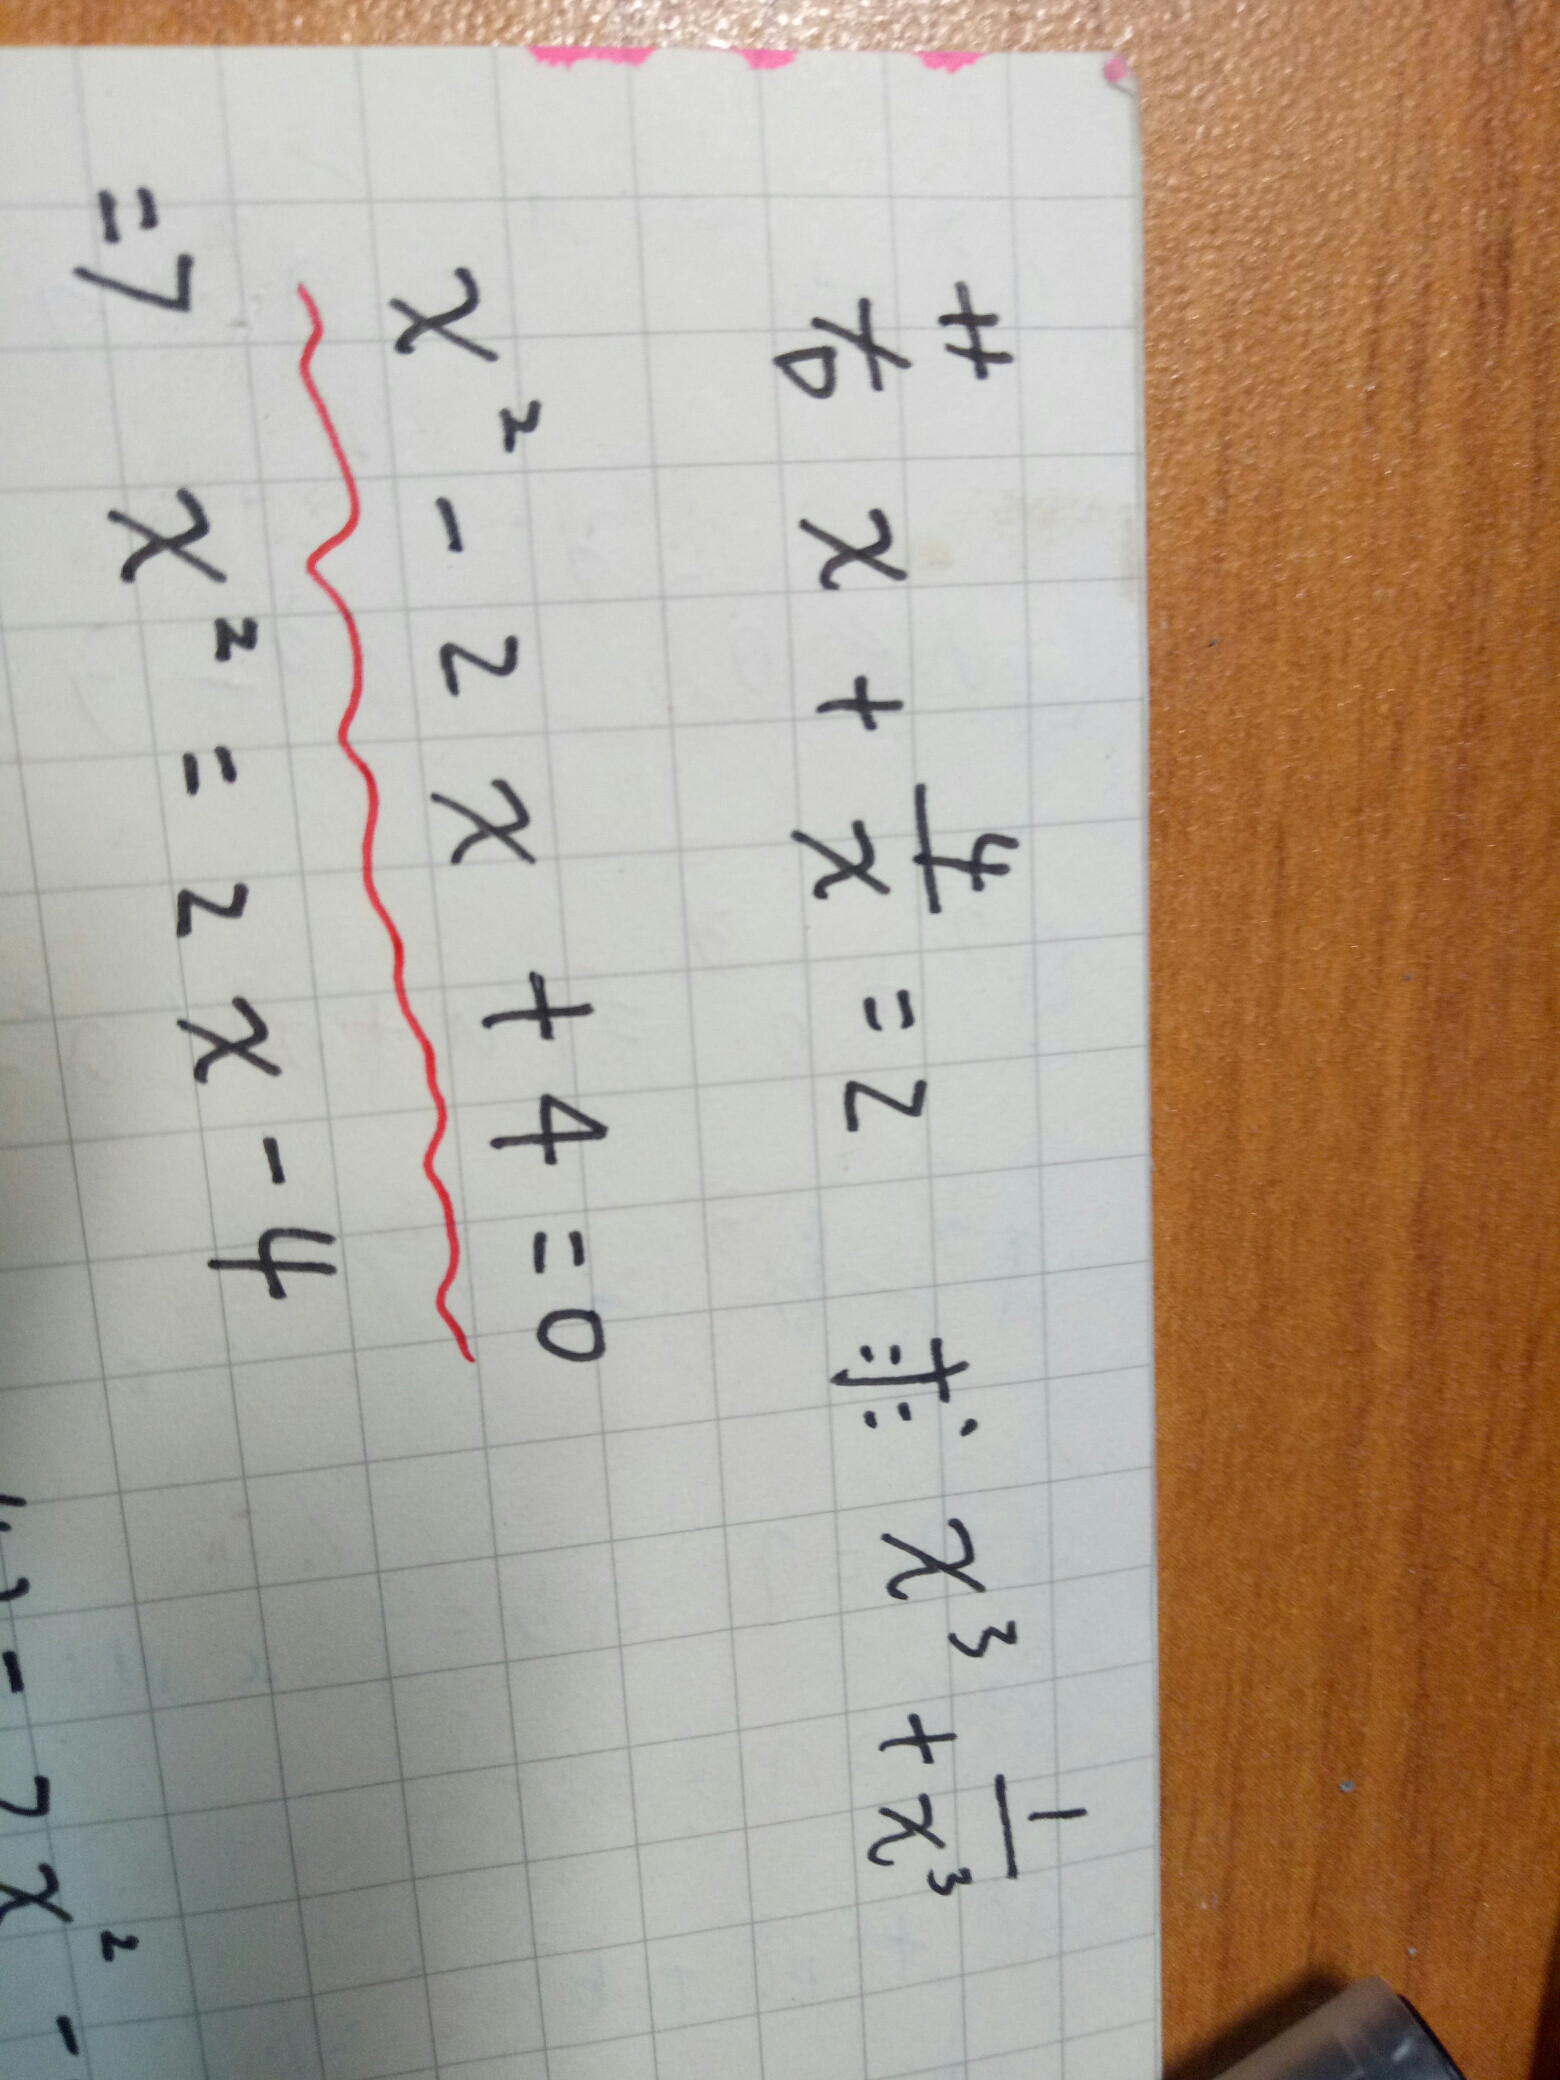 若 x + 4/x = 2 求 x³ + 1/x³
x² - 2x + 4 = 0
=> x² = 2x - 4